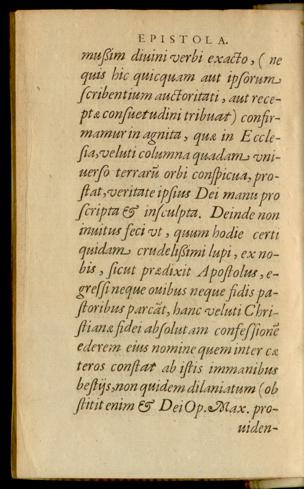 EPISTOLA.
mußim diuini verbi exacto, ( ne
quis hic quicquam aut ipsorum
scribentium auctoritati , aut rece-
ptæ consuetudini tribuat) confir-
mamur in agnita, quæ in Eccle-
sia, veluti columna quadam vni-
uerso terrarũ orbi conspicua, pro-
stat, veritate ipsius Dei manu pro
scripta & insculpta. Deinde non
inuitus feci vt , quum hodie certi
quidam crudelißimi lupi, ex no-
bis , sicut prædixit Apostolus, e-
gressi neque ouibus neque fidis pa-
storibus parcãt, hanc veluti Chri-
stianæ fidei absolutam confessionẽ
ederem eius nomine quem inter cæ
teros constat ab istis immanibus
bestijs, non quidem dilaniatum (ob
stitit enim & Dei Op. Max. pro-
uiden-